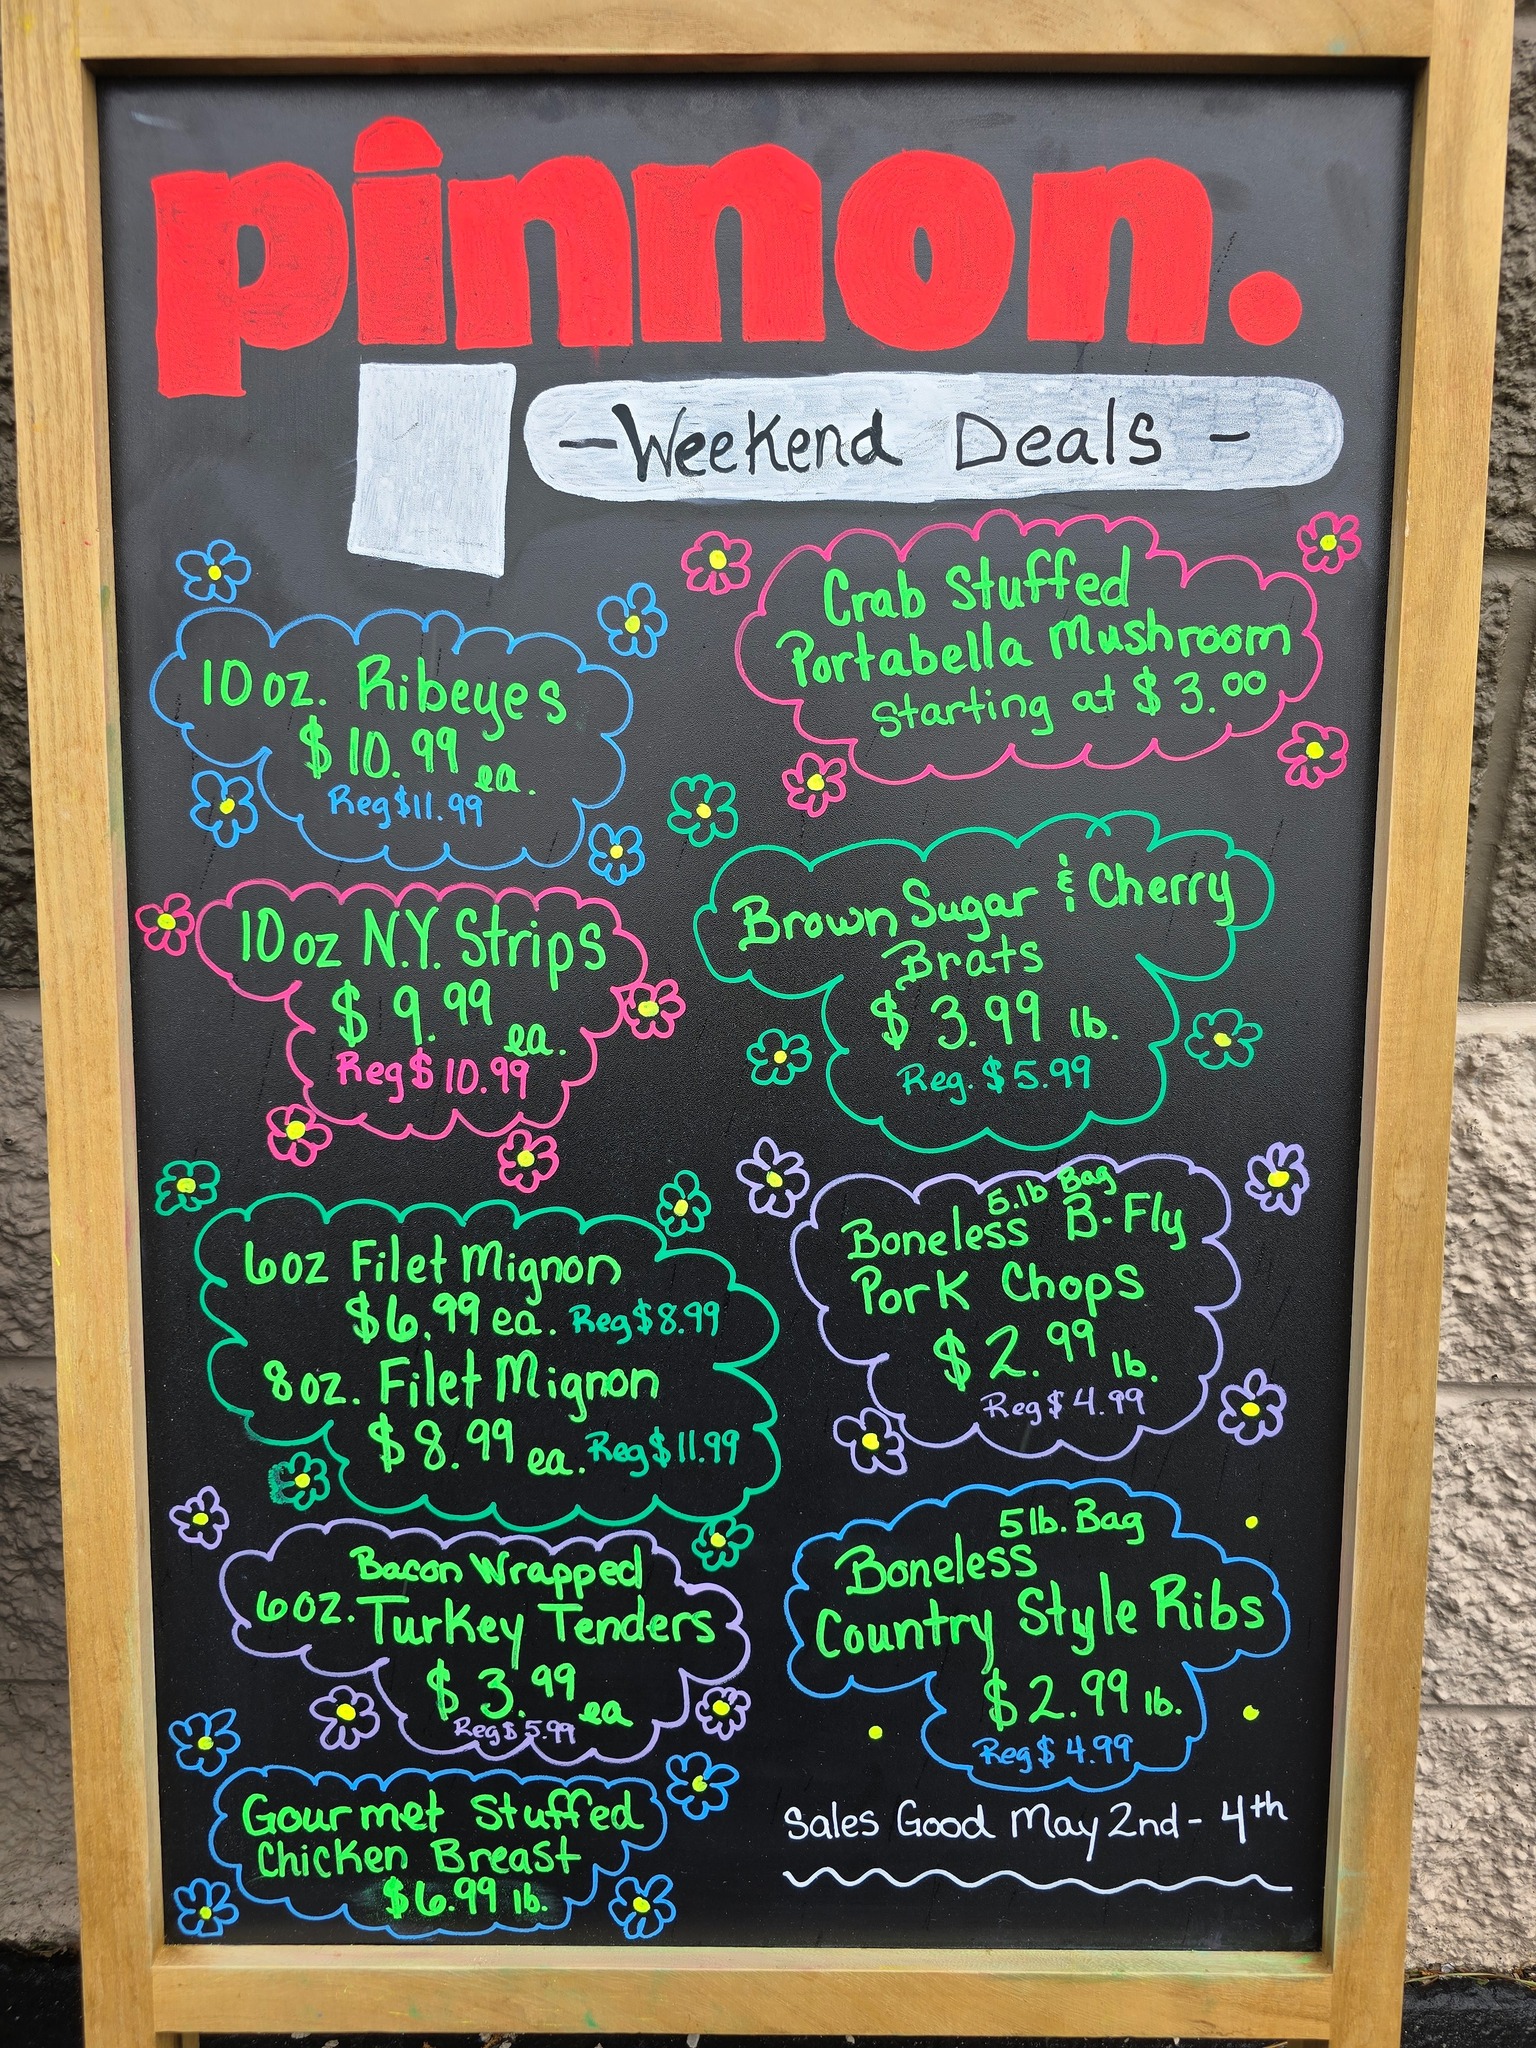 pinnon.
- Weekend Deals -
10 oz. Ribeyes
$10.99 ea.
Reg $11.99
10 oz N.Y. Strips
$9.99 ea.
Reg $10.99
6 oz Filet Mignon
$6.99 ea. Reg $8.99
8 oz. Filet Mignon
$8.99 ea. Reg $11.99
Bacon Wrapped
6 oz. Turkey Tenders
$3.99 ea
Reg $5.99
Gourmet Stuffed
Chicken Breast
$6.99 lb.
Crab Stuffed
Portabella Mushroom
Starting at $3.00
Brown Sugar & Cherry
Brats
$3.99 lb.
Reg. $5.99
5.lb Bag
Boneless B-Fly
Pork Chops
$2.99 lb.
Reg $4.99
5lb. Bag
Boneless
Country Style Ribs
$2.99 lb.
Reg $4.99
Sales Good May 2nd - 4th